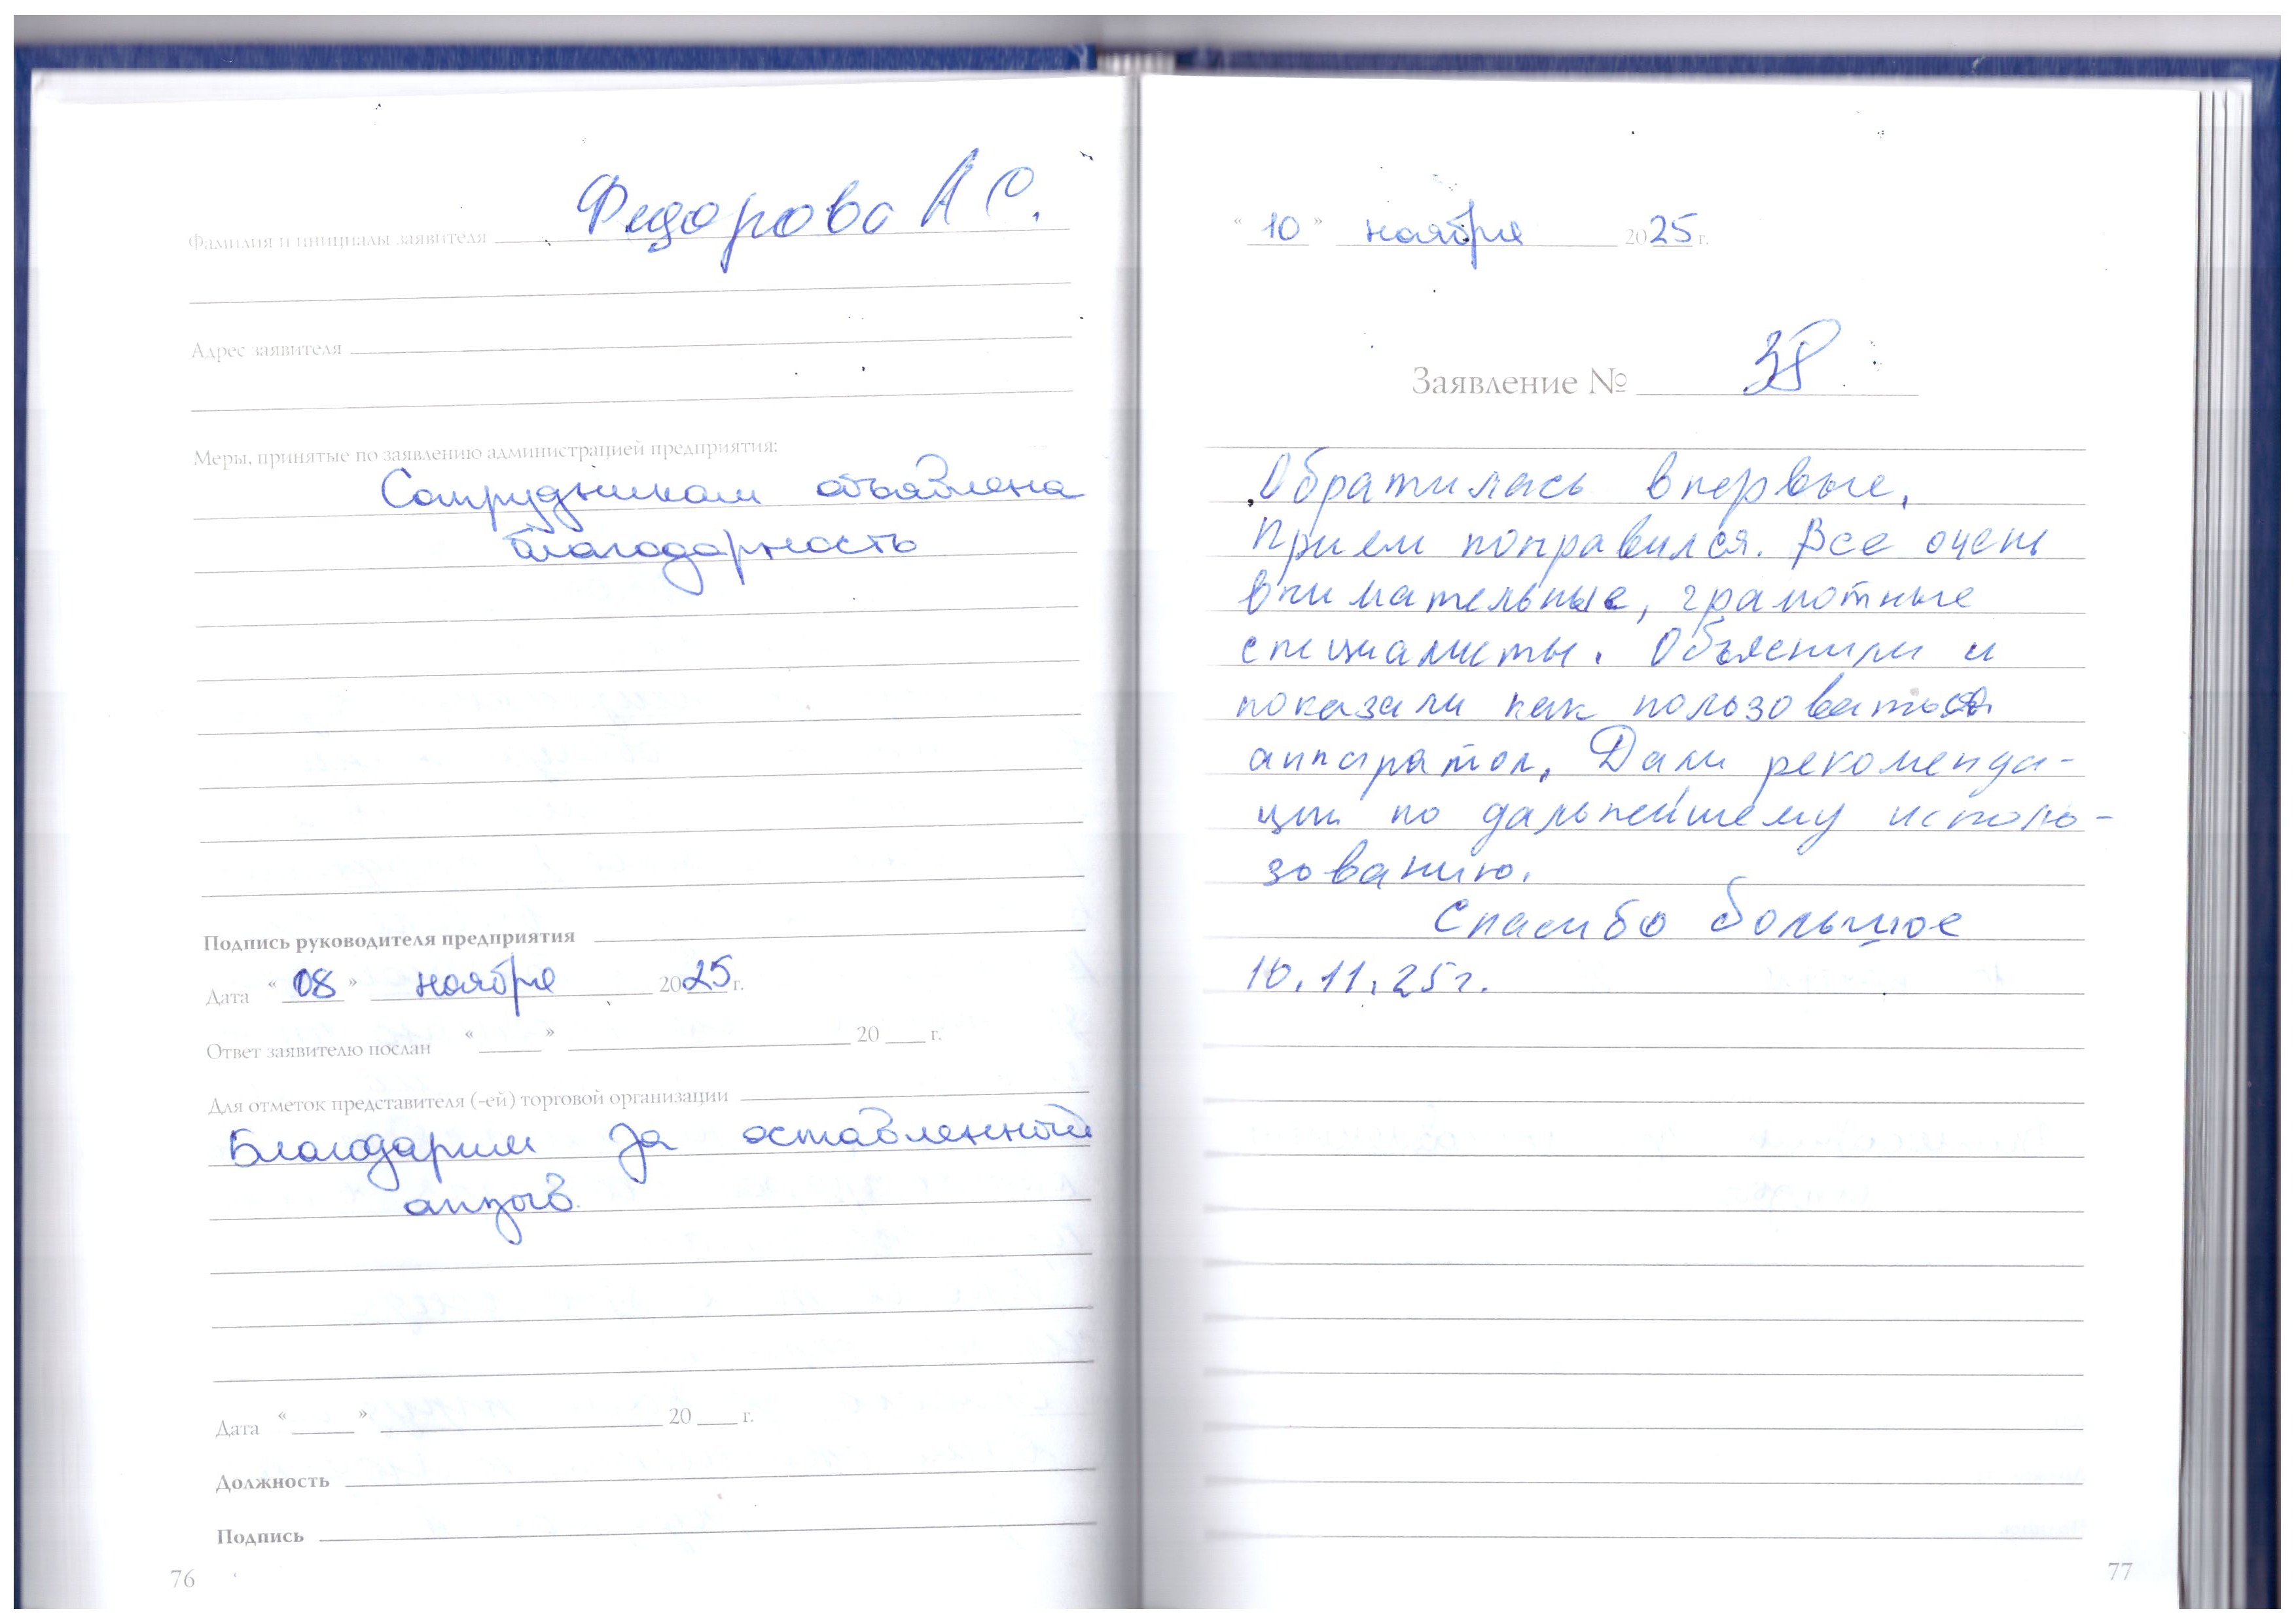 Фамилия и инициалы заявителя Федорова А С.
Адрес заявителя
Меры, принятые по заявлению администрацией предприятия:
Сотрудникам объявлена
благодарность
Подпись руководителя предприятия
Дата " 08 " ноября 2025 г.
Ответ заявителю послан " " 20 г.
Для отметок представителя (-ей) торговой организации
Благодарим за оставленный
отзыв.
Дата " " 20 г.
Должность
Подпись
76
" 10 " ноября 2025 г.
Заявление № 38
Обратилась впервые.
Прием понравился. Все очень
внимательные, грамотные
специалисты. Объяснили и
показали как пользоваться
аппаратом. Дали рекоменда-
ции по дальнейшему исполь-
зованию.
Спасибо большое
10.11.25г.
77